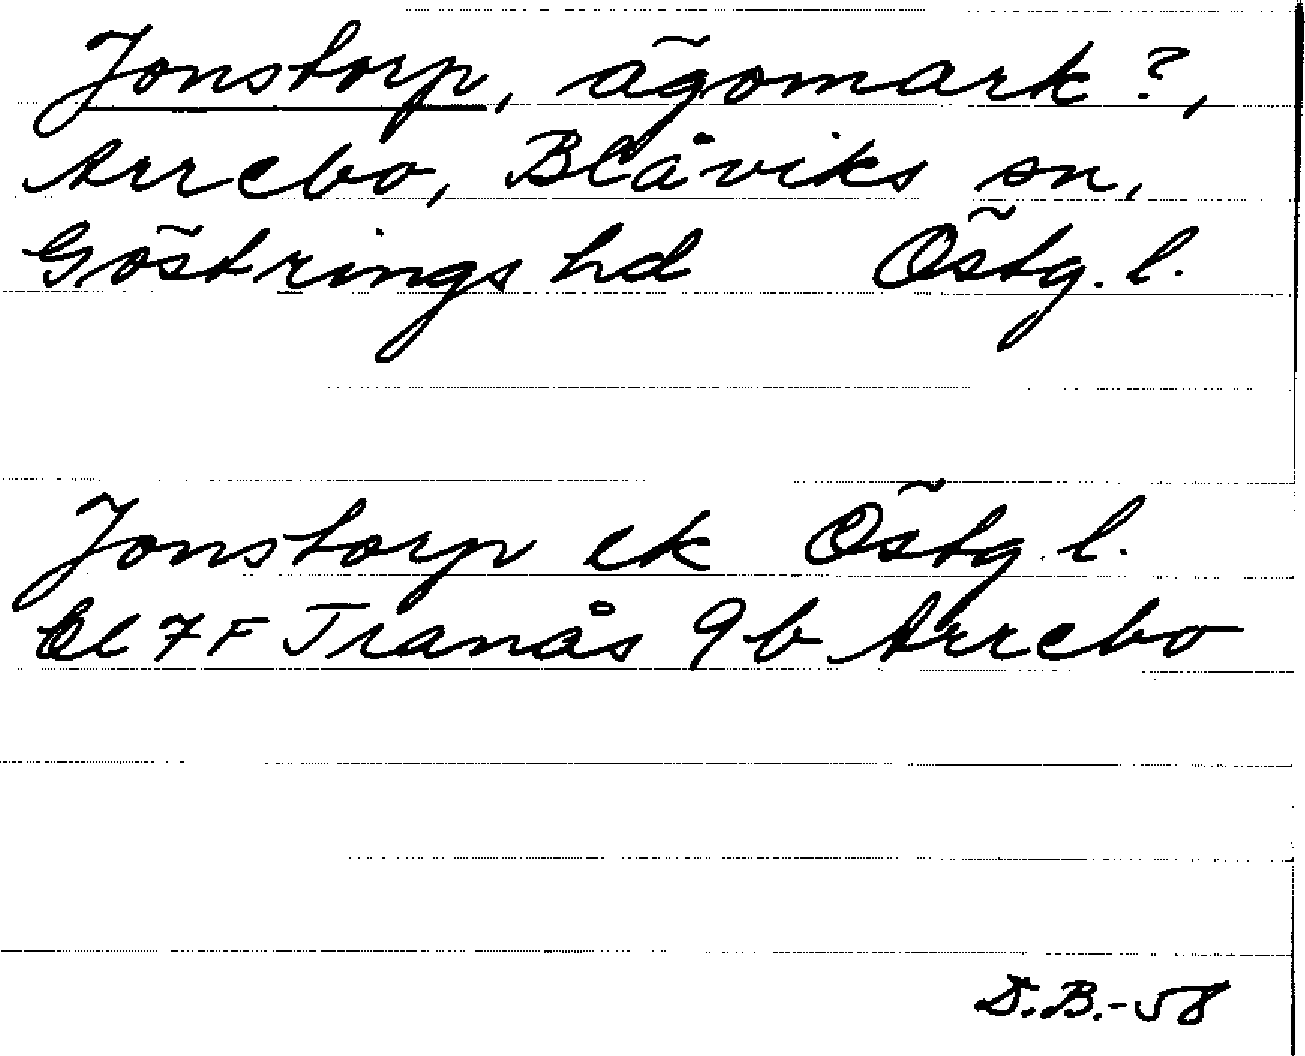 Jonstorp, ägomark ?,
Arrebo, Blåviks sn,
Göstrings hd Östg. l.
Jonstorp ek Östg. l.
El 7F Tranås 9b Arrebo
D.B.-58